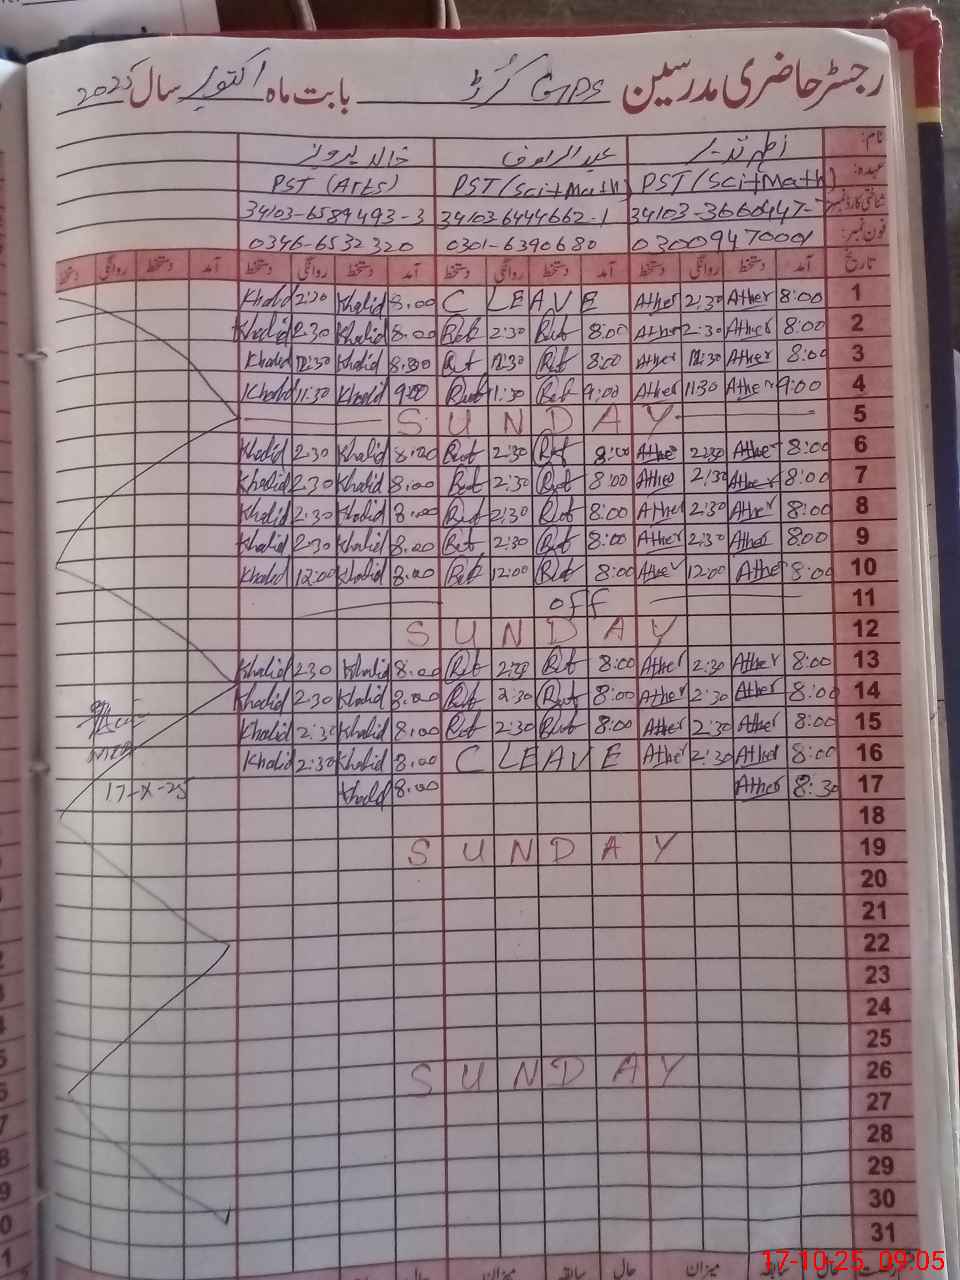 رجسٹر حاضری مدرسین GPS کُرڑ بابت ماہ اکتوبر سال 2025
نام: اطہر نذیر عبد الرؤف خالد پرویز
عہدہ: PST/Sci+Math) PST/Sci+Math) PST (Arts)
شناختی کارڈ نمبر: 34103-3660447- 34103-6444662-1 34103-6589493-3
فون نمبر: 03009470001 0301-6390680 0346-6532320
تاریخ آمد دستخط روانگی دستخط آمد دستخط روانگی دستخط آمد دستخط روانگی دستخط آمد دستخط روانگی دستخط
1 8:00 Ather 2:30 Ather C LEAVE 8.00 Khalid 2:30 Khalid
2 8:00 Ather 2:30 Ather 8:00 2:30 8.00 Khalid 2:30 Khalid
3 8:00 Ather 12:30 Ather 8:00 12:30 8.00 Khalid 12:30 Khalid
4 9:00 Ather 11:30 Ather 9:00 11:30 9:00 Khalid 11:30 Khalid
5 SUNDAY
6 8:00 Ather 2:30 Ather 8:00 2:30 8.00 Khalid 2:30 Khalid
7 8:00 Ather 2:30 Ather 8:00 2:30 8.00 Khalid 2:30 Khalid
8 8:00 Ather 2:30 Ather 8:00 2:30 8.00 Khalid 2:30 Khalid
9 8:00 Ather 2:30 Ather 8:00 2:30 8.00 Khalid 2:30 Khalid
10 8:00 Ather 12:00 Ather 8:00 12:00 8.00 Khalid 12:00 Khalid
11 off
12 SUNDAY
13 8:00 Ather 2:30 Ather 8:00 2:30 8.00 Khalid 2:30 Khalid
14 8:00 Ather 2:30 Ather 8:00 2:30 8.00 Khalid 2:30 Khalid
15 8:00 Ather 2:30 Ather 8:00 2:30 8.00 Khalid 2:30 Khalid
16 8:00 Ather 2:30 Ather C LEAVE 8.00 Khalid 2:30 Khalid
17 8:30 Ather 8.00 Khalid 17-X-25
18
19 SUNDAY
20
21
22
23
24
25
26 SUNDAY
27
28
29
30
31
میزان سابقہ حال میزان
17-10-25 09:05